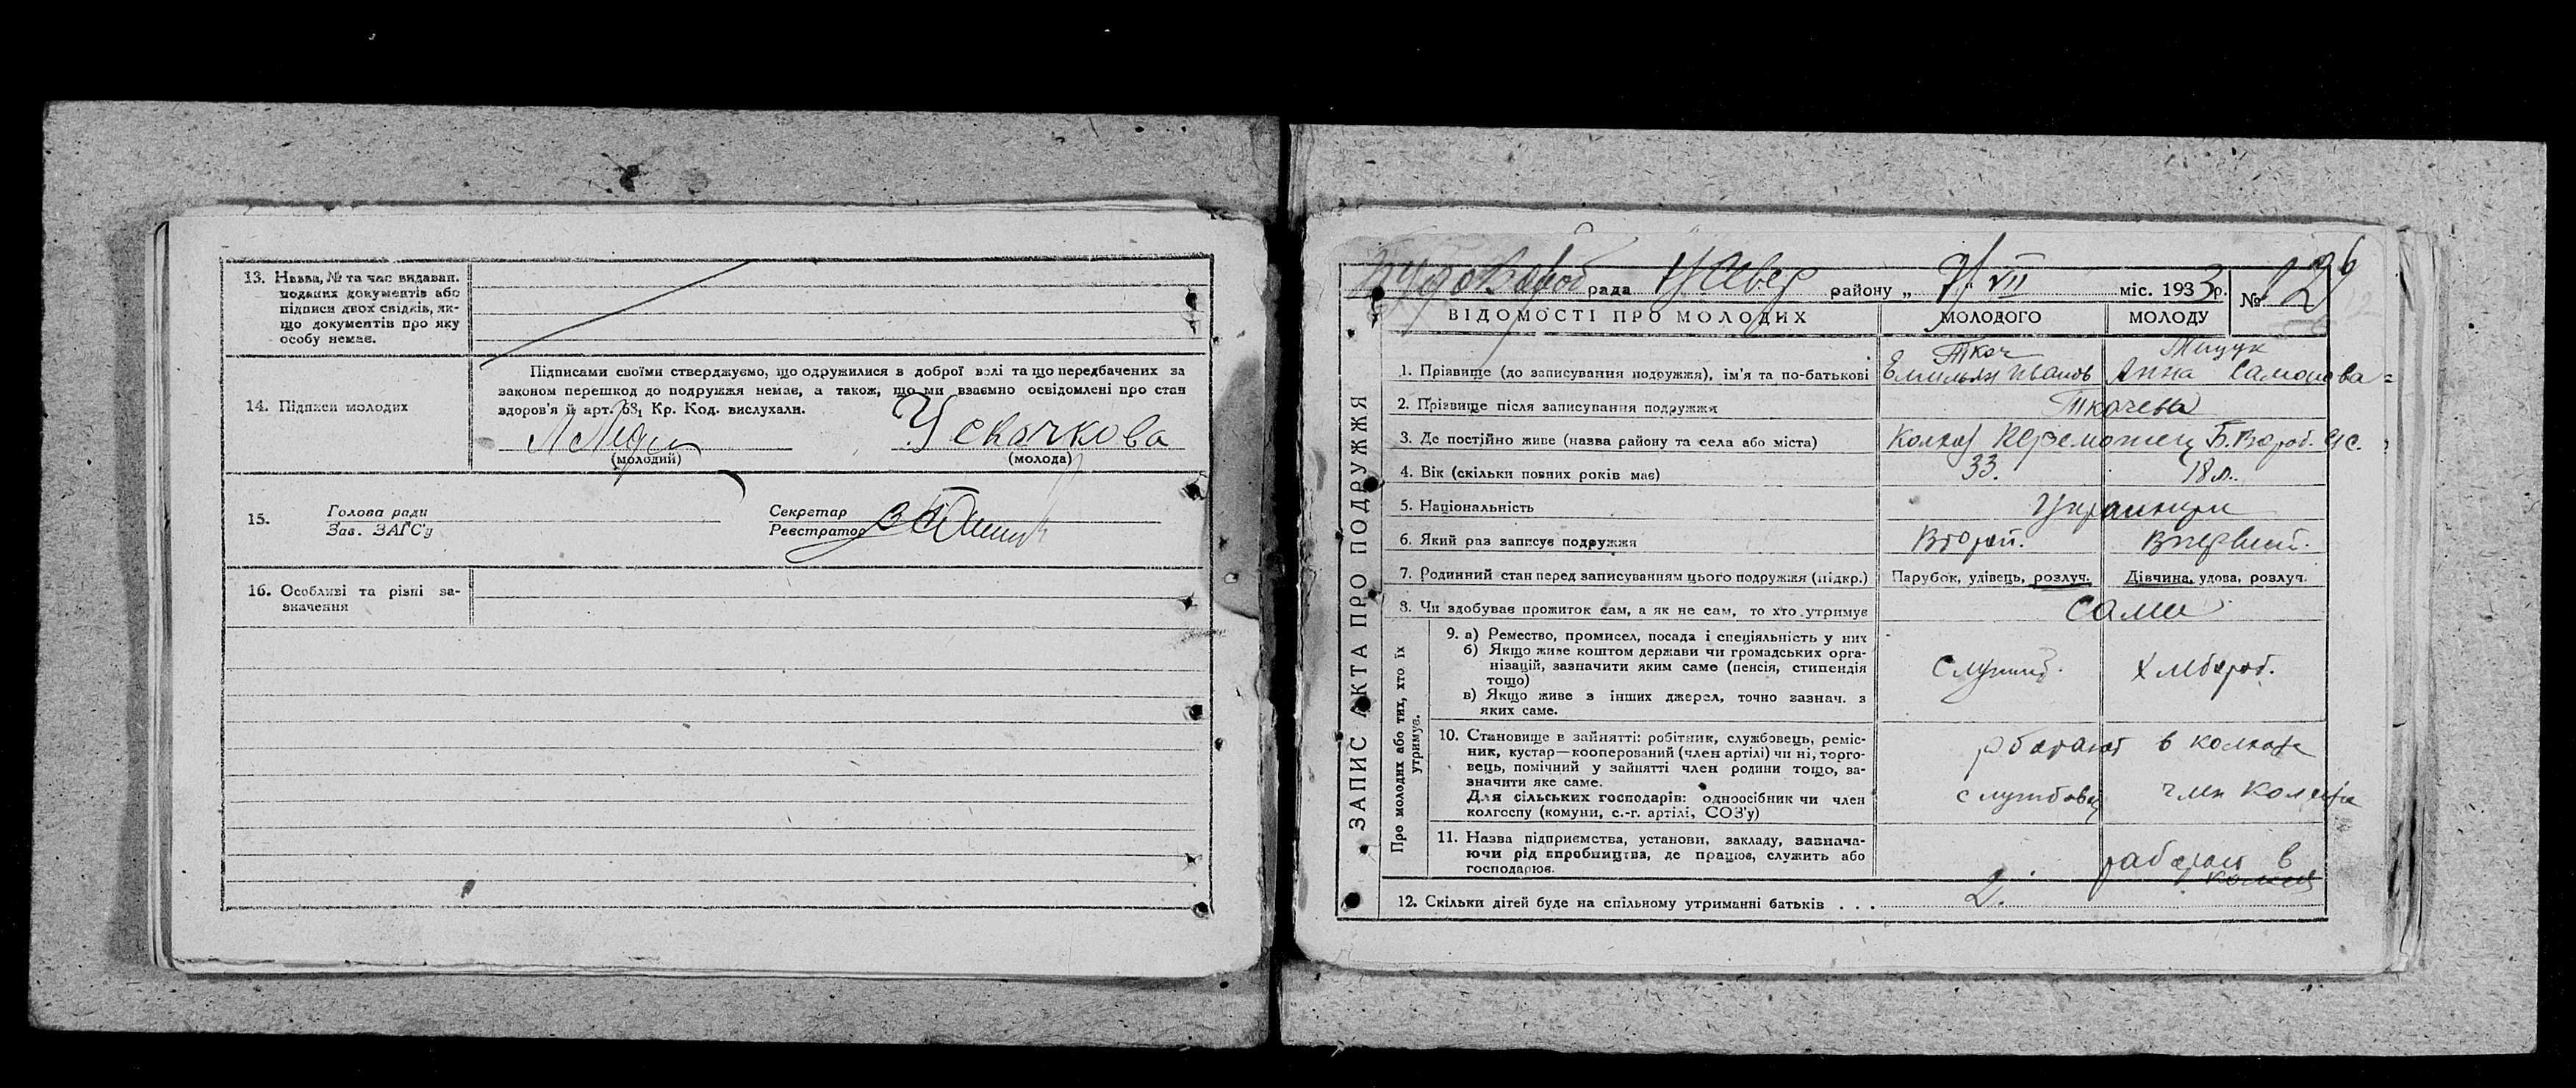 13. Назва, № та час видаван.
поданих документів або
підписи двох свідків, як-
що документів про яку
особу немає.
14. Підписи молодих
Підписами своїми стверджуємо, що одружилися з доброї волі та що передбачених за
законом перешкод до подружжя немає, а також, що ми взаємно освідомлені про стан
здоров'я й арт. 68₁ Кр. Код. вислухали.
Ускачкова
(молодий) (молода)
15. Голова ради
Зав. ЗАГС'у
Секретар
Реєстратор
16. Особливі та різні за-
значення
ЗАПИС АКТА ПРО ПОДРУЖЖЯ
рада району „ VII міс. 1933 р. №
ВІДОМОСТІ ПРО МОЛОДИХ МОЛОДОГО МОЛОДУ
1. Прізвище (до записування подружжя), ім'я та по-батькові Ткач Емильян Иванов Анна
2. Прізвище після записування подружжя Ткачева
3. Де постійно живе (назва району та села або міста) Колхоз Переможец Б.Вороб. с/с.
4. Вік (скільки повних років має) 33. 18 л.
5. Національність Украинци
6. Який раз записує подружжя Второй. Впервый.
7. Родинний стан перед записуванням цього подружжя (підкр.) Парубок, удівець, розлуч. Дівчина, удова, розлуч.
8. Чи здобуває прожиток сам, а як не сам, то хто утримує сами
Про молодих або тих, хто їх
утримує.
9. а) Ремество, промисел, посада і спеціяльність у них
б) Якщо живе коштом держави чи громадських орга-
нізацій, зазначити яким саме (пенсія, стипендія
тощо)
в) Якщо живе з інших джерел, точно зазнач. з
яких саме.
Хлбероб.
10. Становище в зайнятті: робітник, службовець, реміс-
ник, кустар—кооперований (член артілі) чи ні, торго-
вець, помічний у зайнятті член родини тощо, за-
значити яке саме.
Для сільських господарів: одноосібник чи член
колгоспу (комуни, с.-г. артілі, СОЗ'у)
в колхозе
службовец член колхоза
11. Назва підприємства, установи, закладу, зазнача-
ючи рід виробництва, де працює, служить або
господарює.
работают в
12. Скільки дітей буде на спільному утриманні батьків . . . 2.